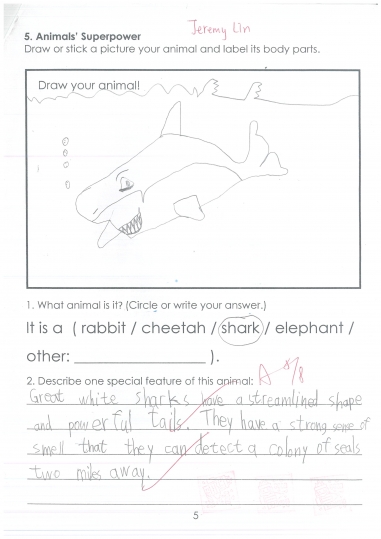 Jeremy Lin
5. Animals' Superpower
Draw or stick a picture your animal and label its body parts.
Draw your animal!
1. What animal is it? (Circle or write your answer.)
It is a ( rabbit / cheetah / shark / elephant /
other: ____________ ).
2. Describe one special feature of this animal: A
Great white sharks have a streamlined shape
and powerful tails. They have a strong sense of
smell that they can detect a colony of seals
two miles away.
5